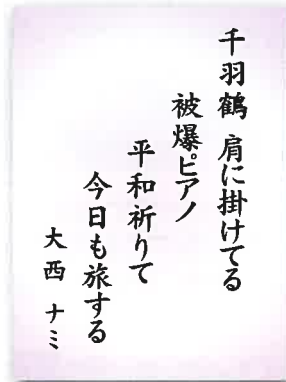 千羽鶴 肩に掛けてる
被爆ピアノ
平和祈りて
今日も旅する
大西 ナミ